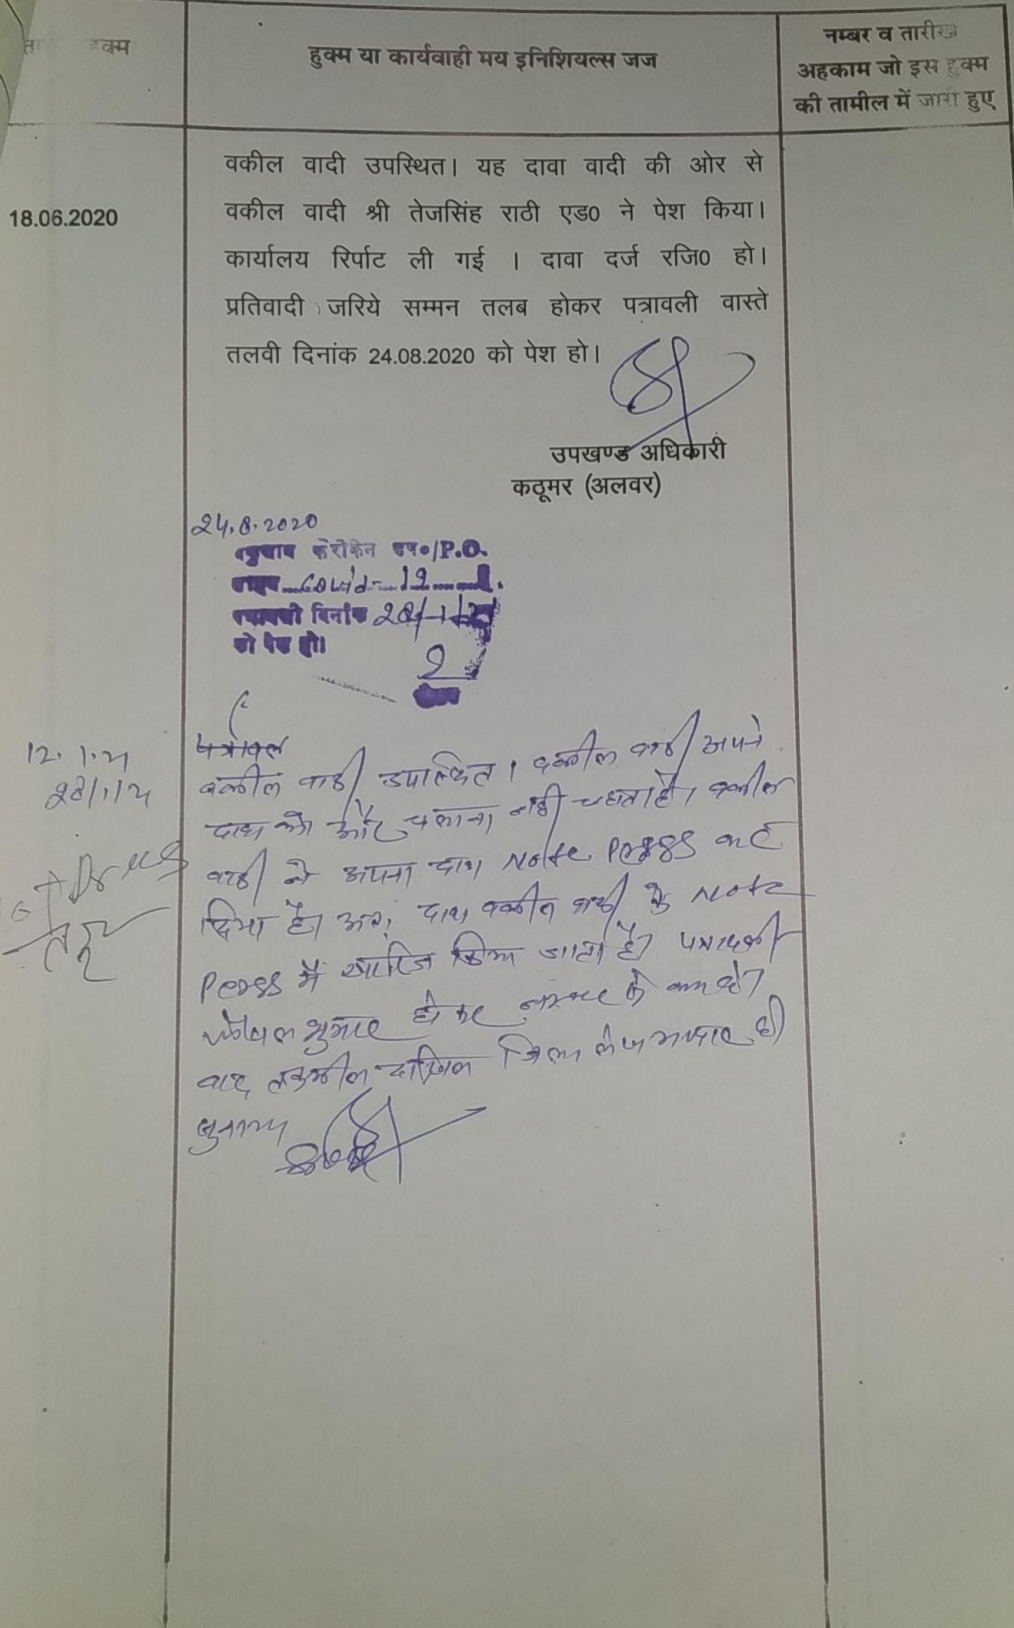 हुक्म
हुक्म या कार्यवाही मय इनिशियल्स जज
नम्बर व तारीख
अहकाम जो इस हुक्म
की तामील में जारी हुए
18.06.2020
वकील वादी उपस्थित। यह दावा वादी की ओर से
वकील वादी श्री तेजसिंह राठी एड0 ने पेश किया।
कार्यालय रिर्पाट ली गई । दावा दर्ज रजि0 हो।
प्रतिवादी जरिये सम्मन तलब होकर पत्रावली वास्ते
तलवी दिनांक 24.08.2020 को पेश हो।
उपखण्ड अधिकारी
कठूमर (अलवर)
24.8.2020
P.O.
Covid-19
दिनांक
को पेश हो।
12.1.21
28/1/21
वकील वादी उपस्थित। वकील वादी अपने
को और चलाना नही चाहता है। वकील
वादी ने अपना दावा Note Perss कर
दिया है। अतः दावा वकील वादी के Note
Perss में खारिज किया जाता है। पत्रावली
फैसल शुमार हो कर नम्बर से कम हो।
बाद तकमील दाखिल